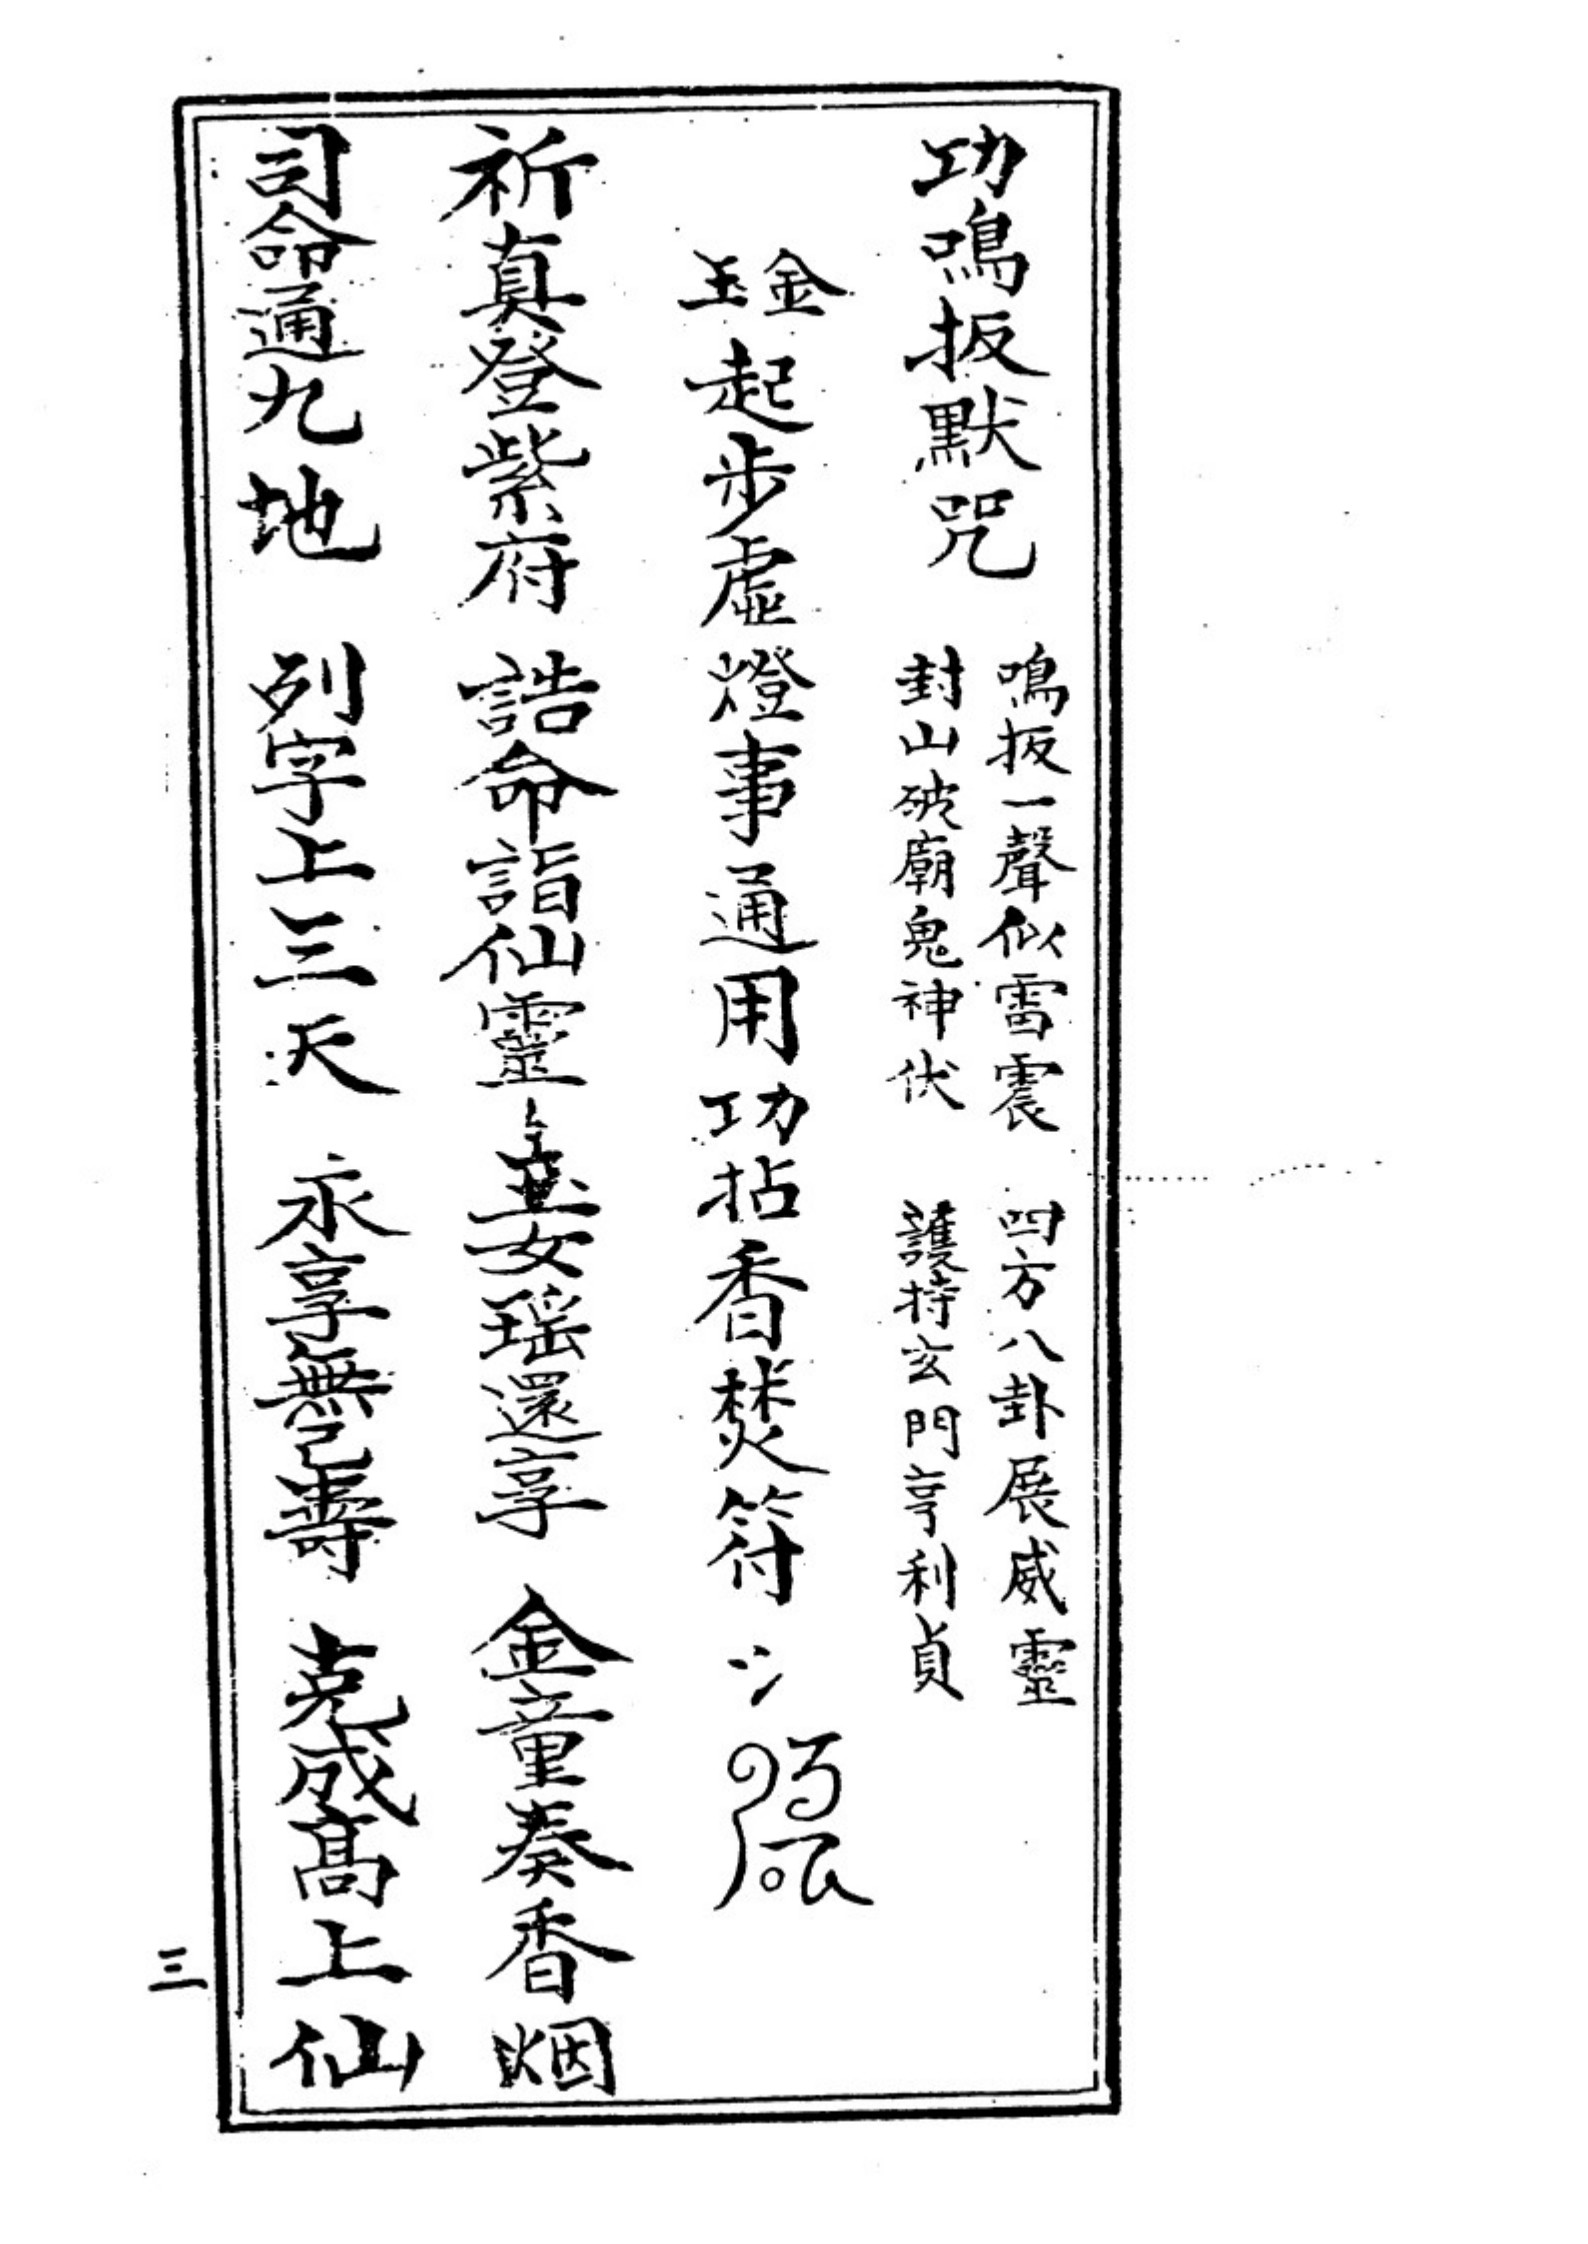 功鳴扳默咒
鳴扳一聲似雷震 四方八卦展威靈
封山破廟鬼神伏 護持玄門亨利貞
金玉起步虛燈事通用功拈香焚符
祈真登紫府 誥命詣仙靈 玉女瑶還享 金童奏香烟
司命通九地 列字上三天 永享無己壽 克成高上仙
三